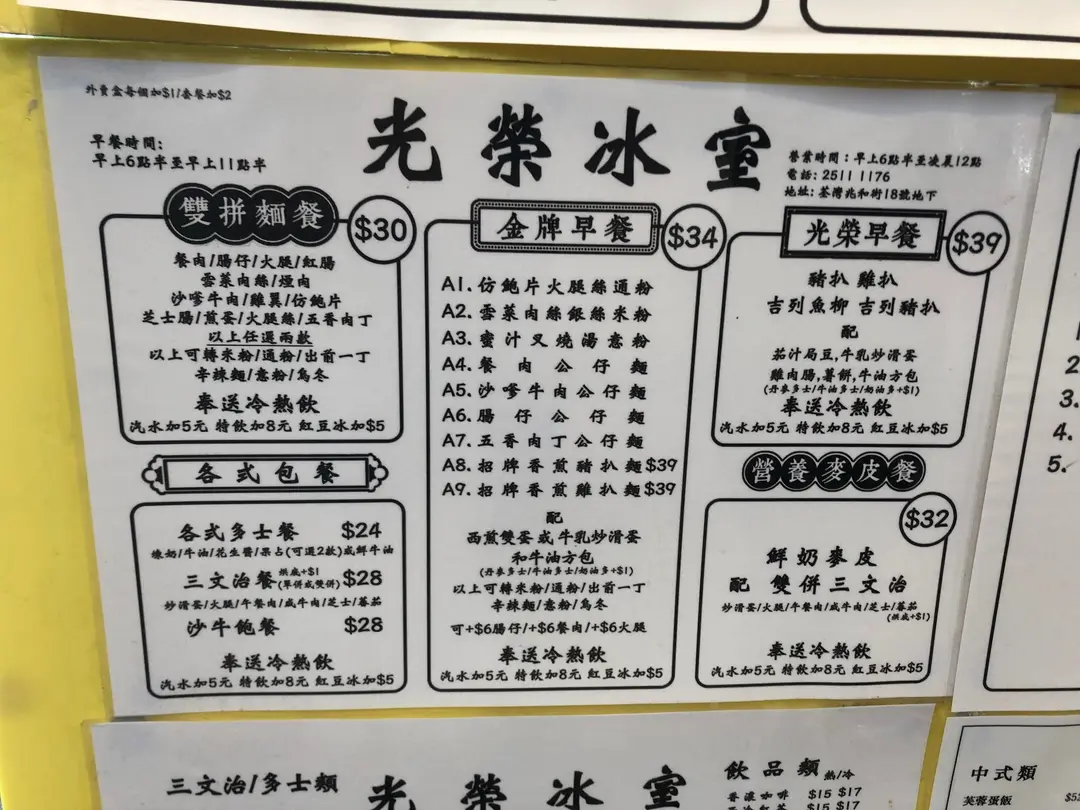 外賣盒每個加$1/套餐加$2
早餐時間:
早上6點半至早上11點半
光榮冰室
營業時間：早上6點半至凌晨12點
電話: 2511 1176
地址: 荃灣兆和街18號地下
雙拼麵餐 $30
餐肉/腸仔/火腿/紅腸
雪菜肉絲/煙肉
沙嗲牛肉/雞翼/仿鮑片
芝士腸/煎蛋/火腿絲/五香肉丁
以上任選兩款
以上可轉米粉/通粉/出前一丁
辛辣麵/意粉/烏冬
奉送冷熱飲
汽水加5元 特飲加8元 紅豆冰加$5
各式包餐
各式多士餐 $24
煉奶/牛油/花生醬/果占(可選2款)或鮮牛油
三文治餐 烘底+$1 (單併或雙併) $28
炒滑蛋/火腿/午餐肉/咸牛肉/芝士/蕃茄
沙牛飽餐 $28
奉送冷熱飲
汽水加5元 特飲加8元 紅豆冰加$5
金牌早餐 $34
A1. 仿鮑片火腿絲通粉
A2. 雪菜肉絲銀絲米粉
A3. 蜜汁叉燒湯意粉
A4. 餐肉公仔麵
A5. 沙嗲牛肉公仔麵
A6. 腸仔公仔麵
A7. 五香肉丁公仔麵
A8. 招牌香煎豬扒麵$39
A9. 招牌香煎雞扒麵$39
配
西煎雙蛋或牛乳炒滑蛋
和牛油方包
(丹麥多士/牛油多士/奶油多+$1)
以上可轉米粉/通粉/出前一丁
辛辣麵/意粉/烏冬
可+$6腸仔/+$6餐肉/+$6火腿
奉送冷熱飲
汽水加5元 特飲加8元 紅豆冰加$5
光榮早餐 $39
豬扒 雞扒
吉列魚柳 吉列豬扒
配
茄汁局豆,牛乳炒滑蛋
雞肉腸,薯餅,牛油方包
(丹麥多士/牛油多士/奶油多+$1)
奉送冷熱飲
汽水加5元 特飲加8元 紅豆冰加$5
營養麥皮餐
$32
鮮奶麥皮
配 雙併三文治
炒滑蛋/火腿/午餐肉/咸牛肉/芝士/蕃茄
(烘底+$1)
奉送冷熱飲
汽水加5元 特飲加8元 紅豆冰加$5
2.
3.
4.
5.
三文治/多士類
光榮冰室
飲品類 熱/冷
香濃咖啡 $15 $17
$15 $17
中式類
芙蓉蛋飯